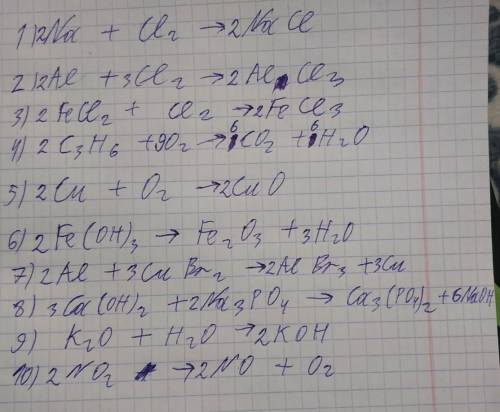 1) 2Na + Cl₂ → 2NaCl
2) 2Al + 3Cl₂ → 2AlCl₃
3) 2FeCl₂ + Cl₂ → 2FeCl₃
4) 2C₃H₆ + 9O₂ → 6CO₂ + 6H₂O
5) 2Cu + O₂ → 2CuO
6) 2Fe(OH)₃ → Fe₂O₃ + 3H₂O
7) 2Al + 3CuBr₂ → 2AlBr₃ + 3Cu
8) 3Ca(OH)₂ + 2Na₃PO₄ → Ca₃(PO₄)₂ + 6NaOH
9) K₂O + H₂O → 2KOH
10) 2NO₂ → 2NO + O₂